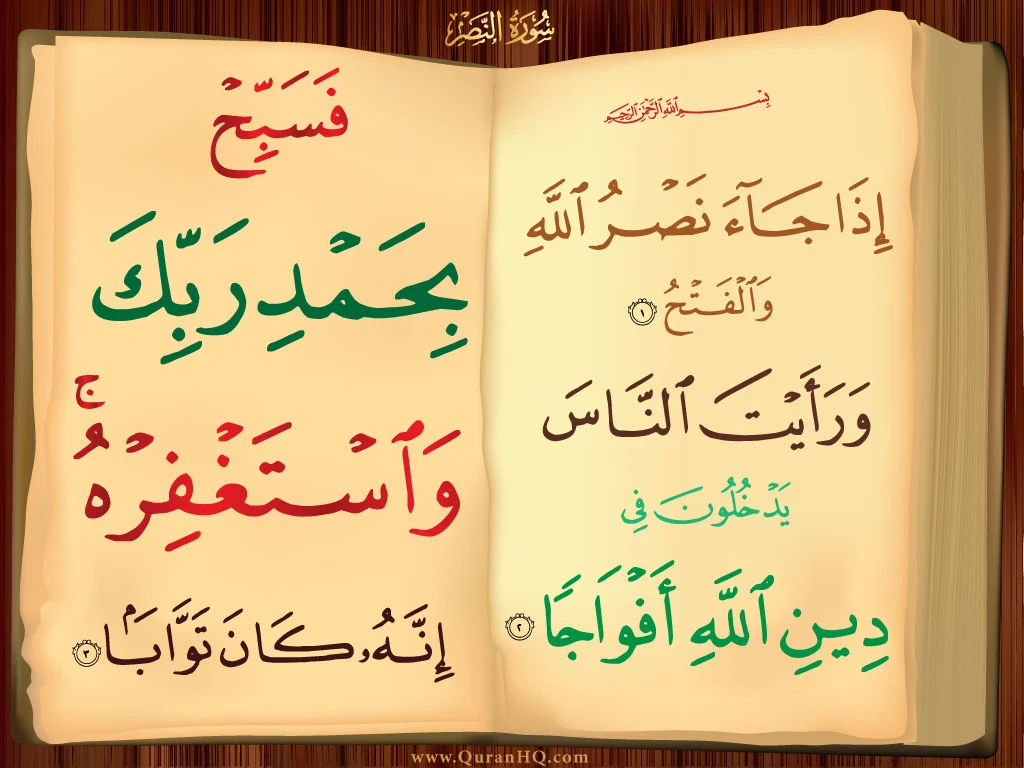 سُورَةُ النَّصْرِ
بِسْمِ اللَّهِ الرَّحْمَٰنِ الرَّحِيمِ
إِذَا جَآءَ نَصْرُ ٱللَّهِ
وَٱلْفَتْحُ ١
وَرَأَيْتَ ٱلنَّاسَ
يَدْخُلُونَ فِى
دِينِ ٱللَّهِ أَفْوَاجًا ٢
فَسَبِّحْ
بِحَمْدِ رَبِّكَ
وَٱسْتَغْفِرْهُ ۚ
إِنَّهُۥ كَانَ تَوَّابَۢا ٣
www.QuranHQ.com